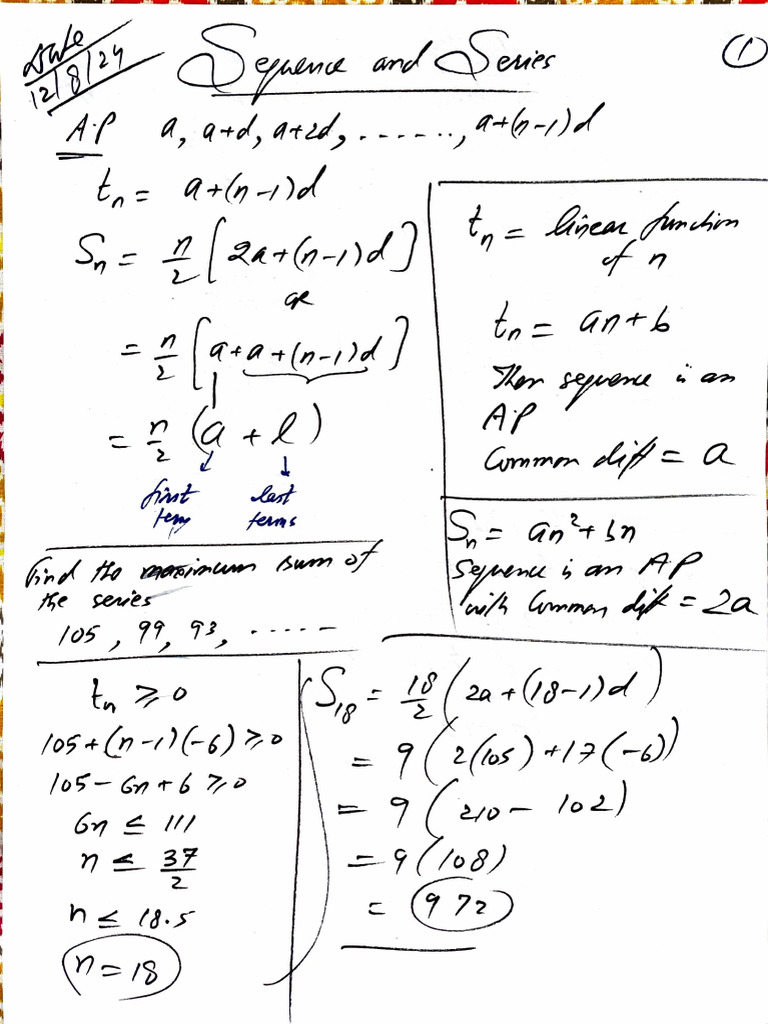 Date
12/8/24
Sequence and Series
1
A.P a, a+d, a+2d, ......., a+(n-1)d
tₙ = a+(n-1)d
Sₙ = n/2 [2a+(n-1)d]
or
= n/2 [a+a+(n-1)d]
= n/2 (a + l)
first last
term terms
tₙ = linear function
of n
tₙ = an+b
Then sequence is an
A.P
Common diff = a
Sₙ = an²+bn
Sequence is an AP
with Common diff = 2a
Find the maximum sum of
the series
105, 99, 93, ......
tₙ ≥ 0
105+(n-1)(-6) ≥ 0
105-6n+6 ≥ 0
6n ≤ 111
n ≤ 37/2
n ≤ 18.5
n = 18
S₁₈ = 18/2 (2a+(18-1)d)
= 9 (2(105)+17(-6))
= 9 (210 - 102)
= 9 (108)
= 972